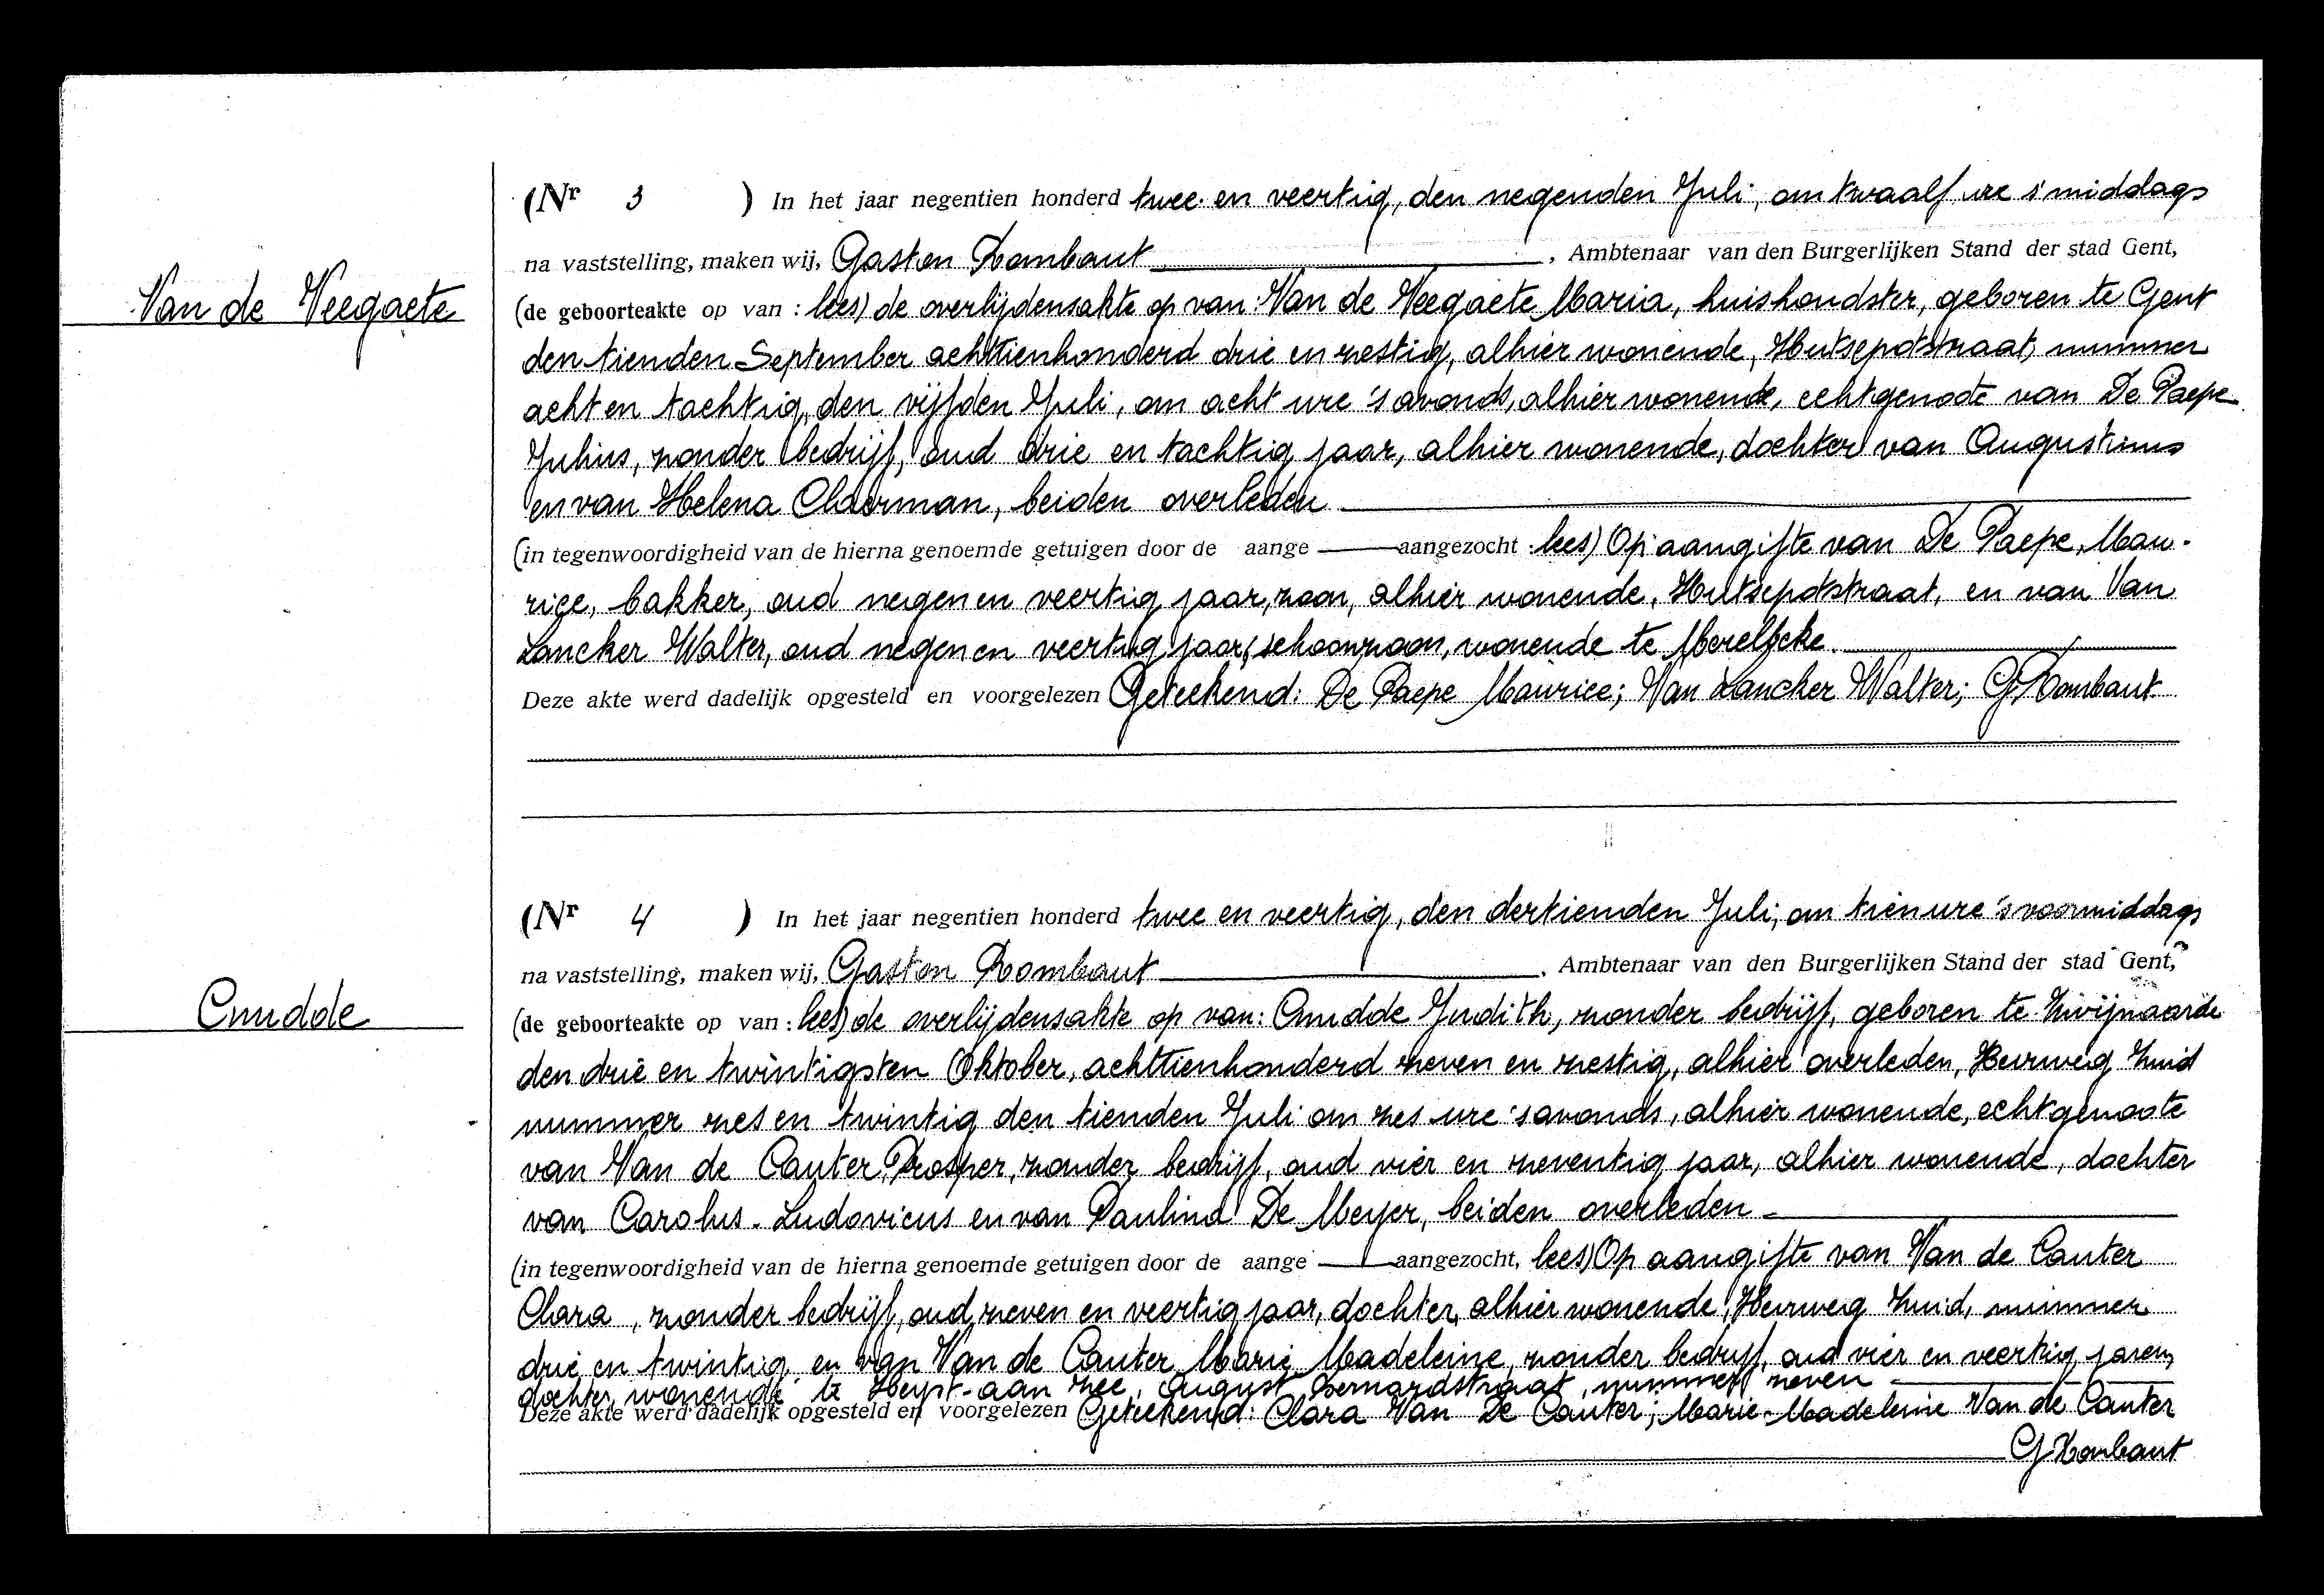 (Nr 3 ) In het jaar negentien honderd twee en veertig, den negenden Juli, om twaalf ure s'middags
na vaststelling, maken wij, Gaston Rombaut, Ambtenaar van den Burgerlijken Stand der stad Gent,
Van de Veegaete
(de geboorteakte op van : lees) de overlijdensakte op van: Van de Veegaete Maria, huishoudster, geboren te Gent
den tienden September achttienhonderd drie en zestig, alhier wonende, Hutsepotstraat, nummer
acht en tachtig, den vijfden Juli, om acht ure 's avonds, alhier wonende, echtgenoote van De Paepe
Julius, zonder bedrijf, oud drie en tachtig jaar, alhier wonende, dochter van Augustinus
en van Helena Claerman, beiden overleden
(in tegenwoordigheid van de hierna genoemde getuigen door de aange aangezocht : lees) Op aangifte van De Paepe, Mau-
rice, bakker, oud negen en veertig jaar, zoon, alhier wonende, Hutsepotstraat, en van Van
Lancker Walter, oud negen en veertig jaar, schoonzoon, wonende te Merelbeke.
Deze akte werd dadelijk opgesteld en voorgelezen Geteekend: De Paepe Maurice; Van Lancker Walter; G Rombaut
(Nr 4 ) In het jaar negentien honderd twee en veertig, den dertienden Juli, om tien ure 's voormiddags
na vaststelling, maken wij, Gaston Rombaut, Ambtenaar van den Burgerlijken Stand der stad Gent,
Cnudde
(de geboorteakte op van : lees) de overlijdensakte op van: Cnudde Judith, zonder bedrijf, geboren te Zwijnaarde
den drie en twintigsten Oktober, achttienhonderd zeven en zestig, alhier overleden, Heirweg Zuid
nummer zes en twintig den tienden Juli om zes ure 's avonds, alhier wonende, echtgenoote
van Van de Cauter Prosper, zonder bedrijf, oud vier en zeventig jaar, alhier wonende, dochter
van Carolus-Ludovicus en van Paulina De Meyer, beiden overleden -
(in tegenwoordigheid van de hierna genoemde getuigen door de aange aangezocht, lees) Op aangifte van Van de Cauter
Clara, zonder bedrijf, oud zeven en veertig jaar, dochter, alhier wonende, Heirweg Zuid, nummer
drie en twintig, en van Van de Cauter Marie Madeleine, zonder bedrijf, oud vier en veertig jaren,
dochter, wonende te Heyst-aan zee, August Bernardstraat, nummer zeven
Deze akte werd dadelijk opgesteld en voorgelezen Geteekend: Clara Van De Cauter; Marie-Madeleine Van de Cauter
G Rombaut